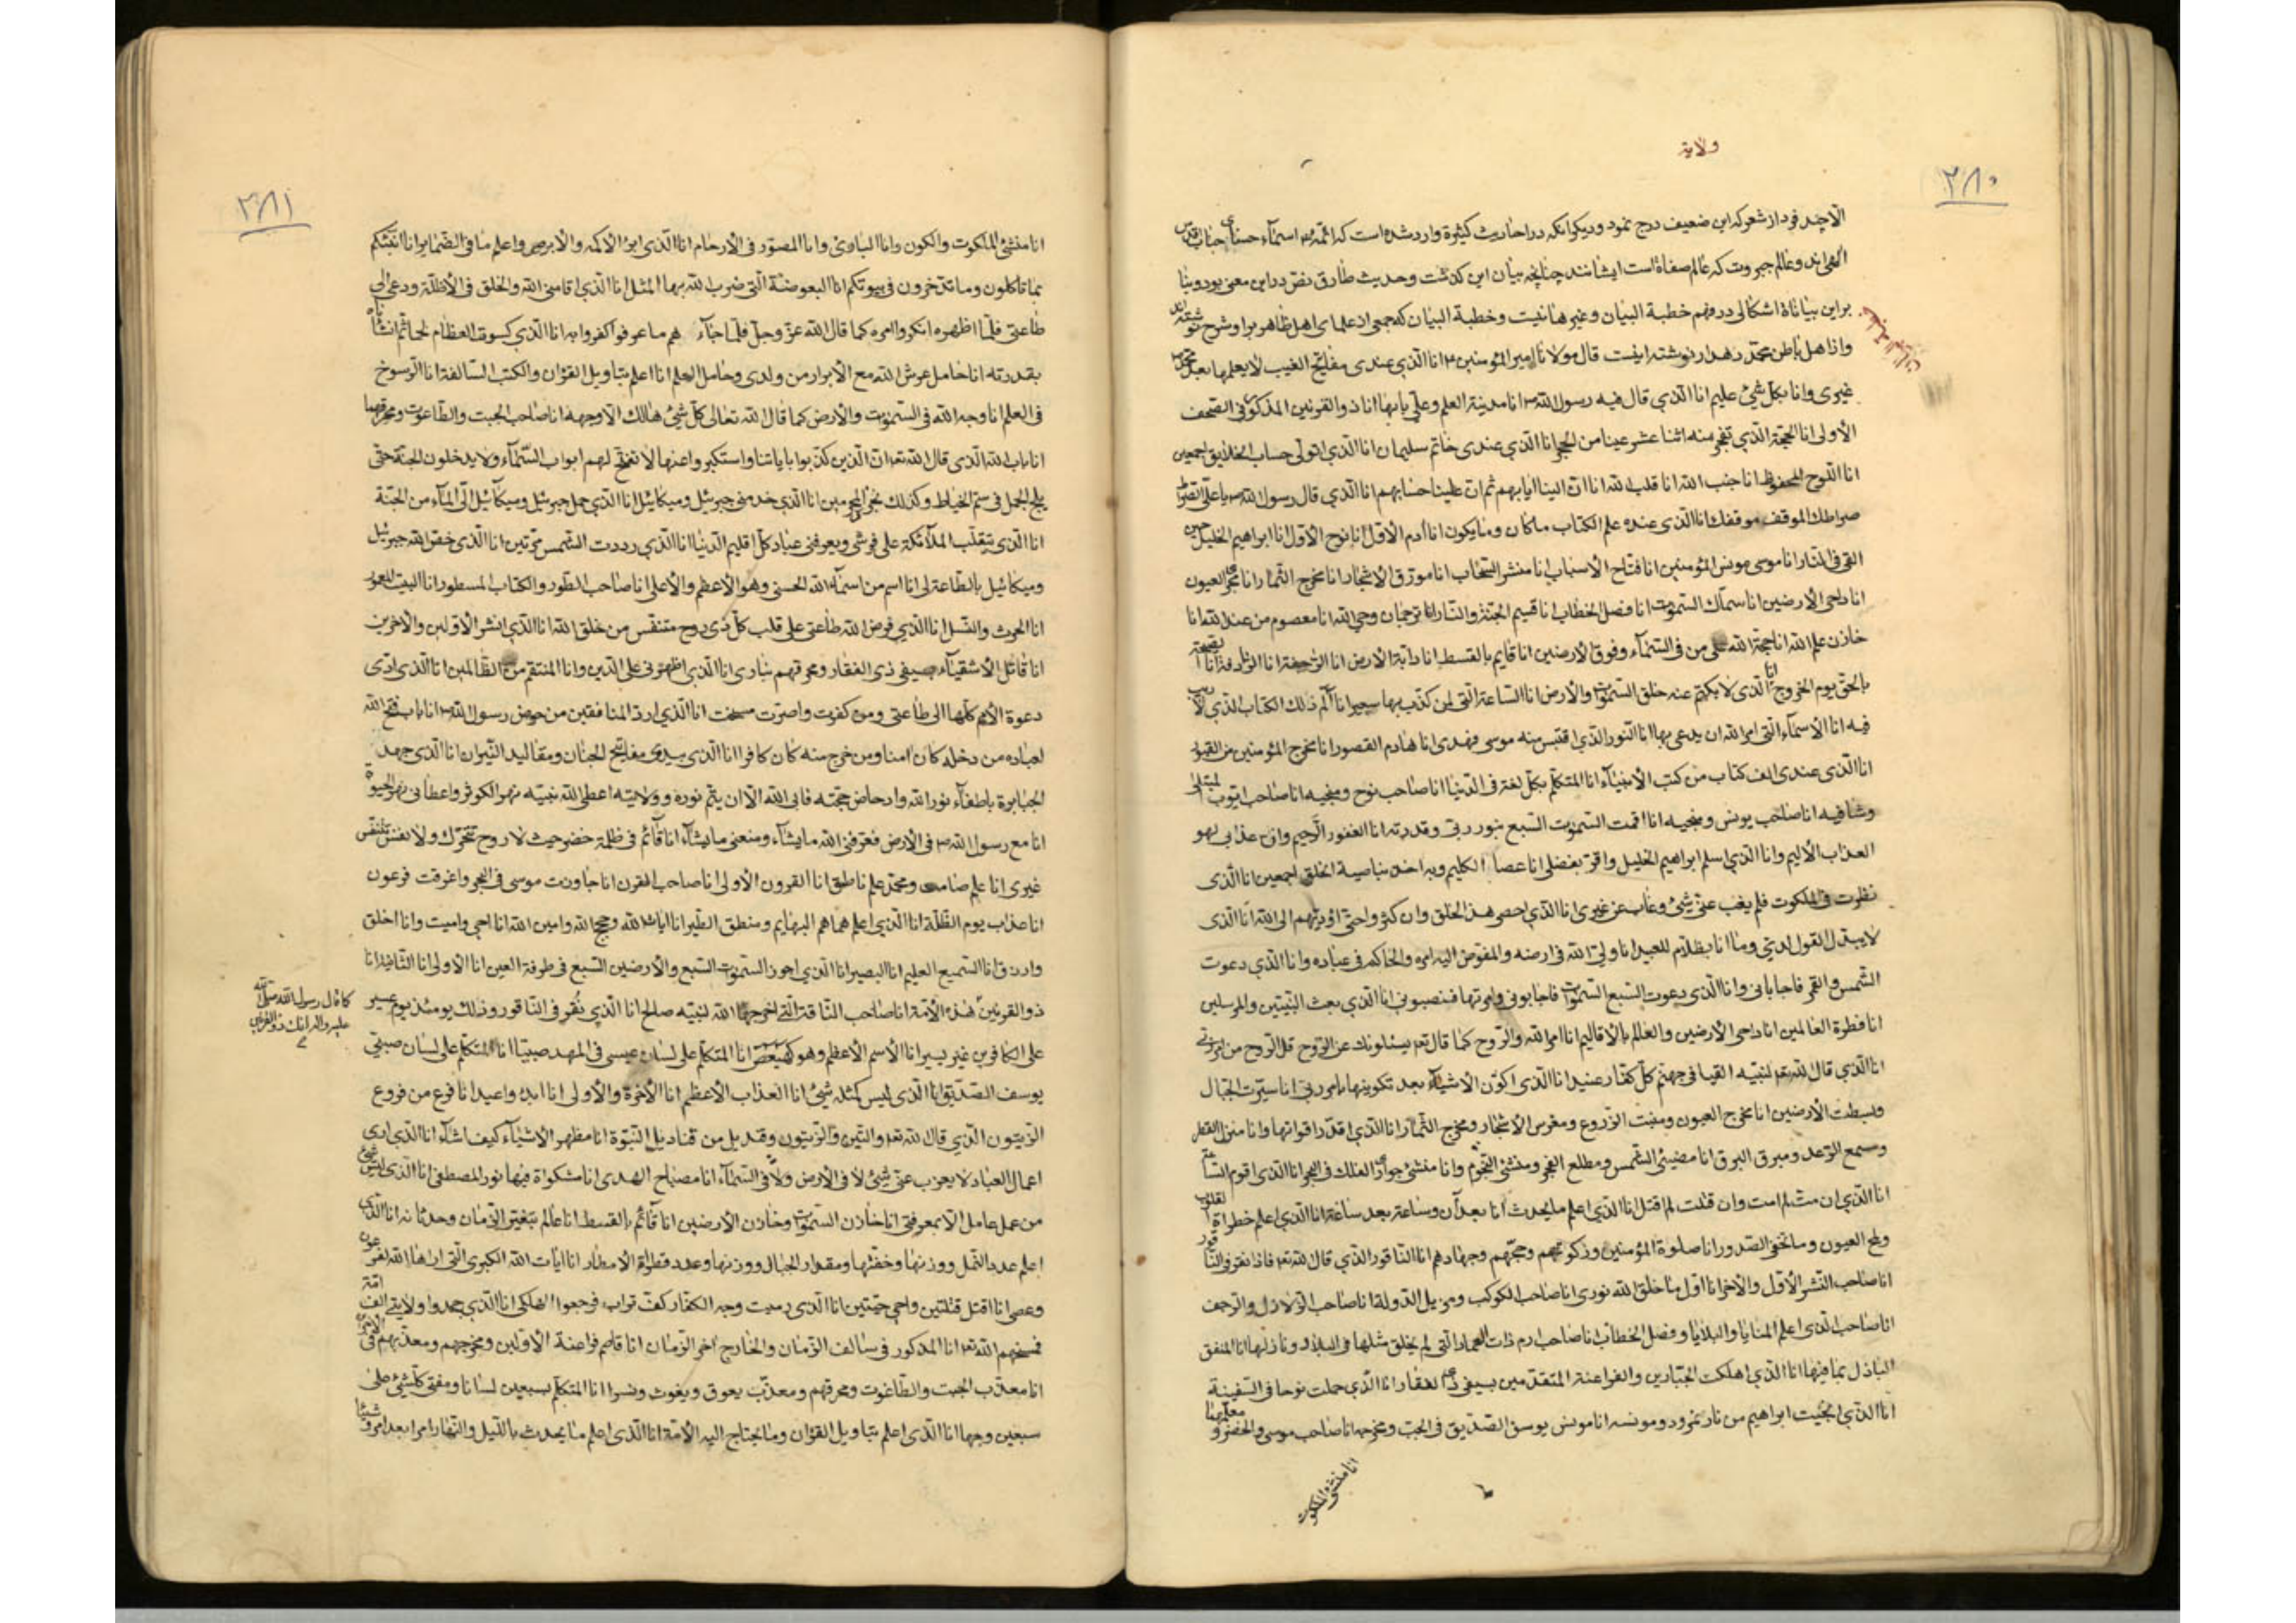 ولایة
۲۸۰
الا چند فرد از شعر که این ضعیف درج نمود و دیگر آنکه در احادیث کثیرة وارد شده است که ائمه اسماء حسنای جناب اقدس
الهی‌اند و عالم جبروت که عالم صفاة است ایشانند چنانچه بیان این کذشت و حدیث طارق نص در این معنی بود و بنا
بر این بیاناة اشکالی در فهم خطبة البیان و غیرها نیست و خطبة البیان که جمعی از علمای اهل ظاهر بر او شرح نوشته‌اند
و از اهل باطن محمد دهدار نوشته اینست قال مولانا امیر المؤمنین انا الذی عندی مفاتیح الغیب لا یعلمها بعد محمد
غیری وانا بکل شیئ علیم انا الذی قال فیه رسول الله انا مدینة العلم وعلی بابها انا ذو القرنین المذکور فی الصحف
الأولی انا الحجة الذی تفجر منه اثنتا عشر عینا من الحجر انا الذی عندی خاتم سلیمان انا الذی اتولی حساب الخلایق اجمعین
انا اللوح المحفوظ انا جنب الله انا قلب الله انا ان الینا ایابهم ثم ان علینا حسابهم انا الذی قال رسول الله یا علی الصراط
صراطك الموقف موقفك انا الذی عنده علم الکتاب ماکان وما یکون انا آدم الأول انا نوح الأول انا ابراهیم الخلیل حین
القی فی النار انا موسی مونس المؤمنین انا فتاح الأسباب انا منشر السحاب انا مورق الاشجار انا مخرج الثمار انا مجری العیون
انا داحی الارضین انا سماك السموت انا فصل الخطاب انا قسیم الجنة والنار انا ترجمان وحی الله انا معصوم من عند الله انا
خازن علم الله انا حجة الله علی من فی السماء وفوق الأرضین انا قایم بالقسط انا دابة الأرض انا الراجفة انا الرادفة انا الصیحة
بالحق یوم الخروج انا الذی لا یکتم عنه خلق السموات والأرض انا الساعة التی لمن کذب بها سعیرا انا الم ذلك الکتاب الذی لا ریب
فیه انا الاسماء التی امر الله ان یدعی بها انا النور الذی اقتبس منه موسی فهدی انا هادم القصور انا مخرج المؤمنین من القبور
انا الذی عندی الف کتاب من کتب الأنبیاء انا المتکلم بکل لغة فی الدنیا انا صاحب نوح ومنجیه انا صاحب ایوب المبتلی
وشافیه انا صاحب یونس ومنجیه انا اقمت السموت السبع بنور ربی وقدرته انا الغفور الرحیم وان عذابی لهو
العذاب الألیم وانا الذی اسلم ابراهیم الخلیل واقر بفضلی انا عصا الکلیم وبه اخذ بناصیة الخلق اجمعین انا الذی
نظرت فی الملکوت فلم یغب عنی شیئ وغاب عن غیری انا الذی احصی هذا الخلق وان کثروا حتی اؤدیهم الی الله انا الذی
لا یبدل القول لدی وما انا بظلام للعبید انا ولی الله فی ارضه والمفوض الیه امره والحاکم فی عباده وانا الذی دعوت
الشمس والقمر فاجابانی وانا الذی دعوت السبع السموات فاجابونی وامرتها فنصبونی انا الذی بعث النبیین والمرسلین
انا فطرة العالمین انا داحی الأرضین والعالم بالأقالیم انا امر الله والروح کما قال تعه یسئلونك عن الروح قل الروح من امر ربی
انا الذی قال الله تعه لنبیه القیا فی جهنم کل کفار عنید انا الذی اکون الاشیاء بعد تکوینها بامر ربی انا سیرت الجبال
وبسطت الأرضین انا مخرج العیون ومنبت الزروع ومغرس الأشجار ومخرج الثمار انا الذی اقدر اقواتها وانا منزل القطر
ومسمع الرعد ومبرق البرق انا مضیئ الشمس ومطلع الفجر ومنشئ النجوم وانا منشئ جوار الفلك فی البحر انا الذی اقوم الساعة
انا الذی ان مت لم امت وان قتلت لم اقتل انا الذی اعلم ما یحدث آنا بعد آن وساعة بعد ساعة انا الذی اعلم خطراة القلوب
ولمح العیون وما تخفی الصدور انا صلوة المؤمنین وزکوتهم وحجهم وجهادهم انا الناقور الذی قال الله تعه فاذا نقر فی الناقور
انا صاحب النشر الأول والآخر انا اول ما خلق الله نوری انا صاحب الکوکب ومزیل الدولة انا صاحب الزلازل والرجف
انا صاحب الذی اعلم المنایا والبلایا وفصل الخطاب انا صاحب ارم ذات العماد التی لم یخلق مثلها فی البلاد ونازلها انا المنفق
الباذل بما فیها انا الذی اهلکت الجبارین والفراعنة المتقدمین بسیفی ذی الفقار انا الذی حملت نوحا فی السفینة
انا الذی انجیت ابراهیم من نار نمرود ومونسه انا مونس یوسف الصدیق فی الجب ومخرجه انا صاحب موسی والخضر ومعلمهما
انا منشئ الملکوت
۲۸۱
انا منشئ الملکوت والکون وانا الباری وانا المصور فی الأرحام انا الذی ابرئ الأکمه والأبرص واعلم ما فی الضمایر انا انبئکم
بما تأکلون وما تدخرون فی بیوتکم انا البعوضة التی ضرب الله بها المثل انا الذی اقامنی الله والخلق فی الأظلة ودعی الی
طاعتی فلما اظهره انکروا امره کما قال الله عز وجل فلما جاء هم ما عرفوا کفروا به انا الذی کسوت العظام لحما ثم انشأناه
بقدرته انا حامل عرش الله مع الأبرار من ولدی وحامل العلم انا اعلم بتاویل القرآن والکتب السالفة انا الرسوخ
فی العلم انا وجه الله فی السموت والأرض کما قال الله تعالی کل شیئ هالك الا وجهه انا صاحب الجبت والطاغوت ومحرقهما
انا باب الله الذی قال الله تعه ان الذین کذبوا بایاتنا واستکبروا عنها لا تفتح لهم ابواب السماء ولا یدخلون الجنة حتی
یلج الجمل فی سم الخیاط وکذلك نجزی المجرمین انا الذی خدمنی جبرئیل ومیکائیل انا الذی حمل جبرئیل ومیکائیل الی الماء من الجنة
انا الذی تتقلب الملائکة علی فرشی ویعرفنی عباد کل اقلیم الدنیا انا الذی رددت الشمس مرتین انا الذی خص الله جبرئیل
ومیکائیل بالطاعة لی انا اسم من اسماء الله الحسنی وهو الأعظم والأعلی انا صاحب الطور والکتاب المسطور انا البیت المعمور
انا الحرث والنسل انا الذی فرض الله طاعتی علی قلب کل ذی روح متنفس من خلق الله انا الذی انشر الأولین والآخرین
انا قاتل الأشقیاء بسیفی ذی الفقار ومحرقهم بناری انا الذی اظهرنی علی الدین وانا المنتقم من الظالمین انا الذی اری
دعوة الأمم کلها الی طاعتی ومن کفرت واصرت مسخت انا الذی ارد المنافقین من حوض رسول الله انا باب فتح الله
لعباده من دخله کان امنا ومن خرج منه کان کافرا انا الذی بیدی مفاتیح الجنان ومقالید النیران انا الذی جهد
الجبابرة باطفاء نور الله وادحاض حجته فابی الله الا ان یتم نوره وولایته اعطی الله نبیه نهر الکوثر واعطانی نهر الحیوة
انا مع رسول الله فی الأرض فعرفنی الله ما یشاء ومنعنی ما یشاء انا قائم فی ظلمة خضر حیث لا روح تتحرك ولا نفس تتنفس
غیری انا علم صامت ومحمد علم ناطق انا القرون الأولی انا صاحب القرن انا جاوزت موسی فی البحر واغرقت فرعون
انا عذاب یوم الظلة انا الذی اعلم هماهم البهایم ومنطق الطیر انا ایات الله وحجج الله وامین الله انا احیی وامیت وانا اخلق
وارزق انا السمیع العلیم انا البصیر انا الذی اجوز السموت السبع والأرضین السبع فی طرفة العین انا الأولی انا الثانیة انا
ذو القرنین هذه الأمة انا صاحب الناقة التی اخرجها الله لنبیه صالح انا الذی نقر فی الناقور وذلك یومئذ یوم عسیر
علی الکافرین غیر یسیر انا الاسم الأعظم وهو کهیعص انا المتکلم علی لسان عیسی فی المهد صبیا انا المتکلم علی لسان صبی
یوسف الصدیق انا الذی لیس کمثله شیئ انا العذاب الأعظم انا الآخرة والأولی انا ابدء واعید انا فرع من فروع
الزیتون الذی قال الله تعه والتین والزیتون وقندیل من قنادیل النبوة انا مظهر الأشیاء کیف اشاء انا الذی اری
اعمال العباد لا یعزب عنی شیئ لا فی الأرض ولا فی السماء انا مصباح الهدی انا مشکواة فیها نور المصطفی انا الذی لیس شیئ
من عمل عامل الا بمعرفتی انا خازن السموات وخازن الأرضین انا قائم بالقسط انا عالم بتغیر الزمان وحدثانه انا الذی
اعلم عدد النمل ووزنها وخفتها ومقدار الجبال ووزنها وعدد قطراة الامطار انا ایات الله الکبری التی اراها الله فرعون
وعصی انا اقتل قتلتین واحیی حیتین انا الذی رمیت وجه الکفار کف تراب فرجعوا اهلکی انا الذی جحدوا ولایتی الف امة
فمسخهم الله تعه انا المذکور فی سالف الزمان والخارج آخر الزمان انا قاصم فراعنة الأولین ومخرجهم ومعذبهم فی الآخرین
انا معذب الجبت والطاغوت ومحرقهم ومعذب یعوق ویغوث ونسرا انا المتکلم بسبعین لسانا ومفتی کل شیئ علی
سبعین وجها انا الذی اعلم بتاویل القرآن وما یحتاج الیه الأمة انا الذی اعلم ما یحدث باللیل والنهار امرا بعد امر وشیئا
کما قال رسول الله صلی الله
علیه واله انك ذو القرنین